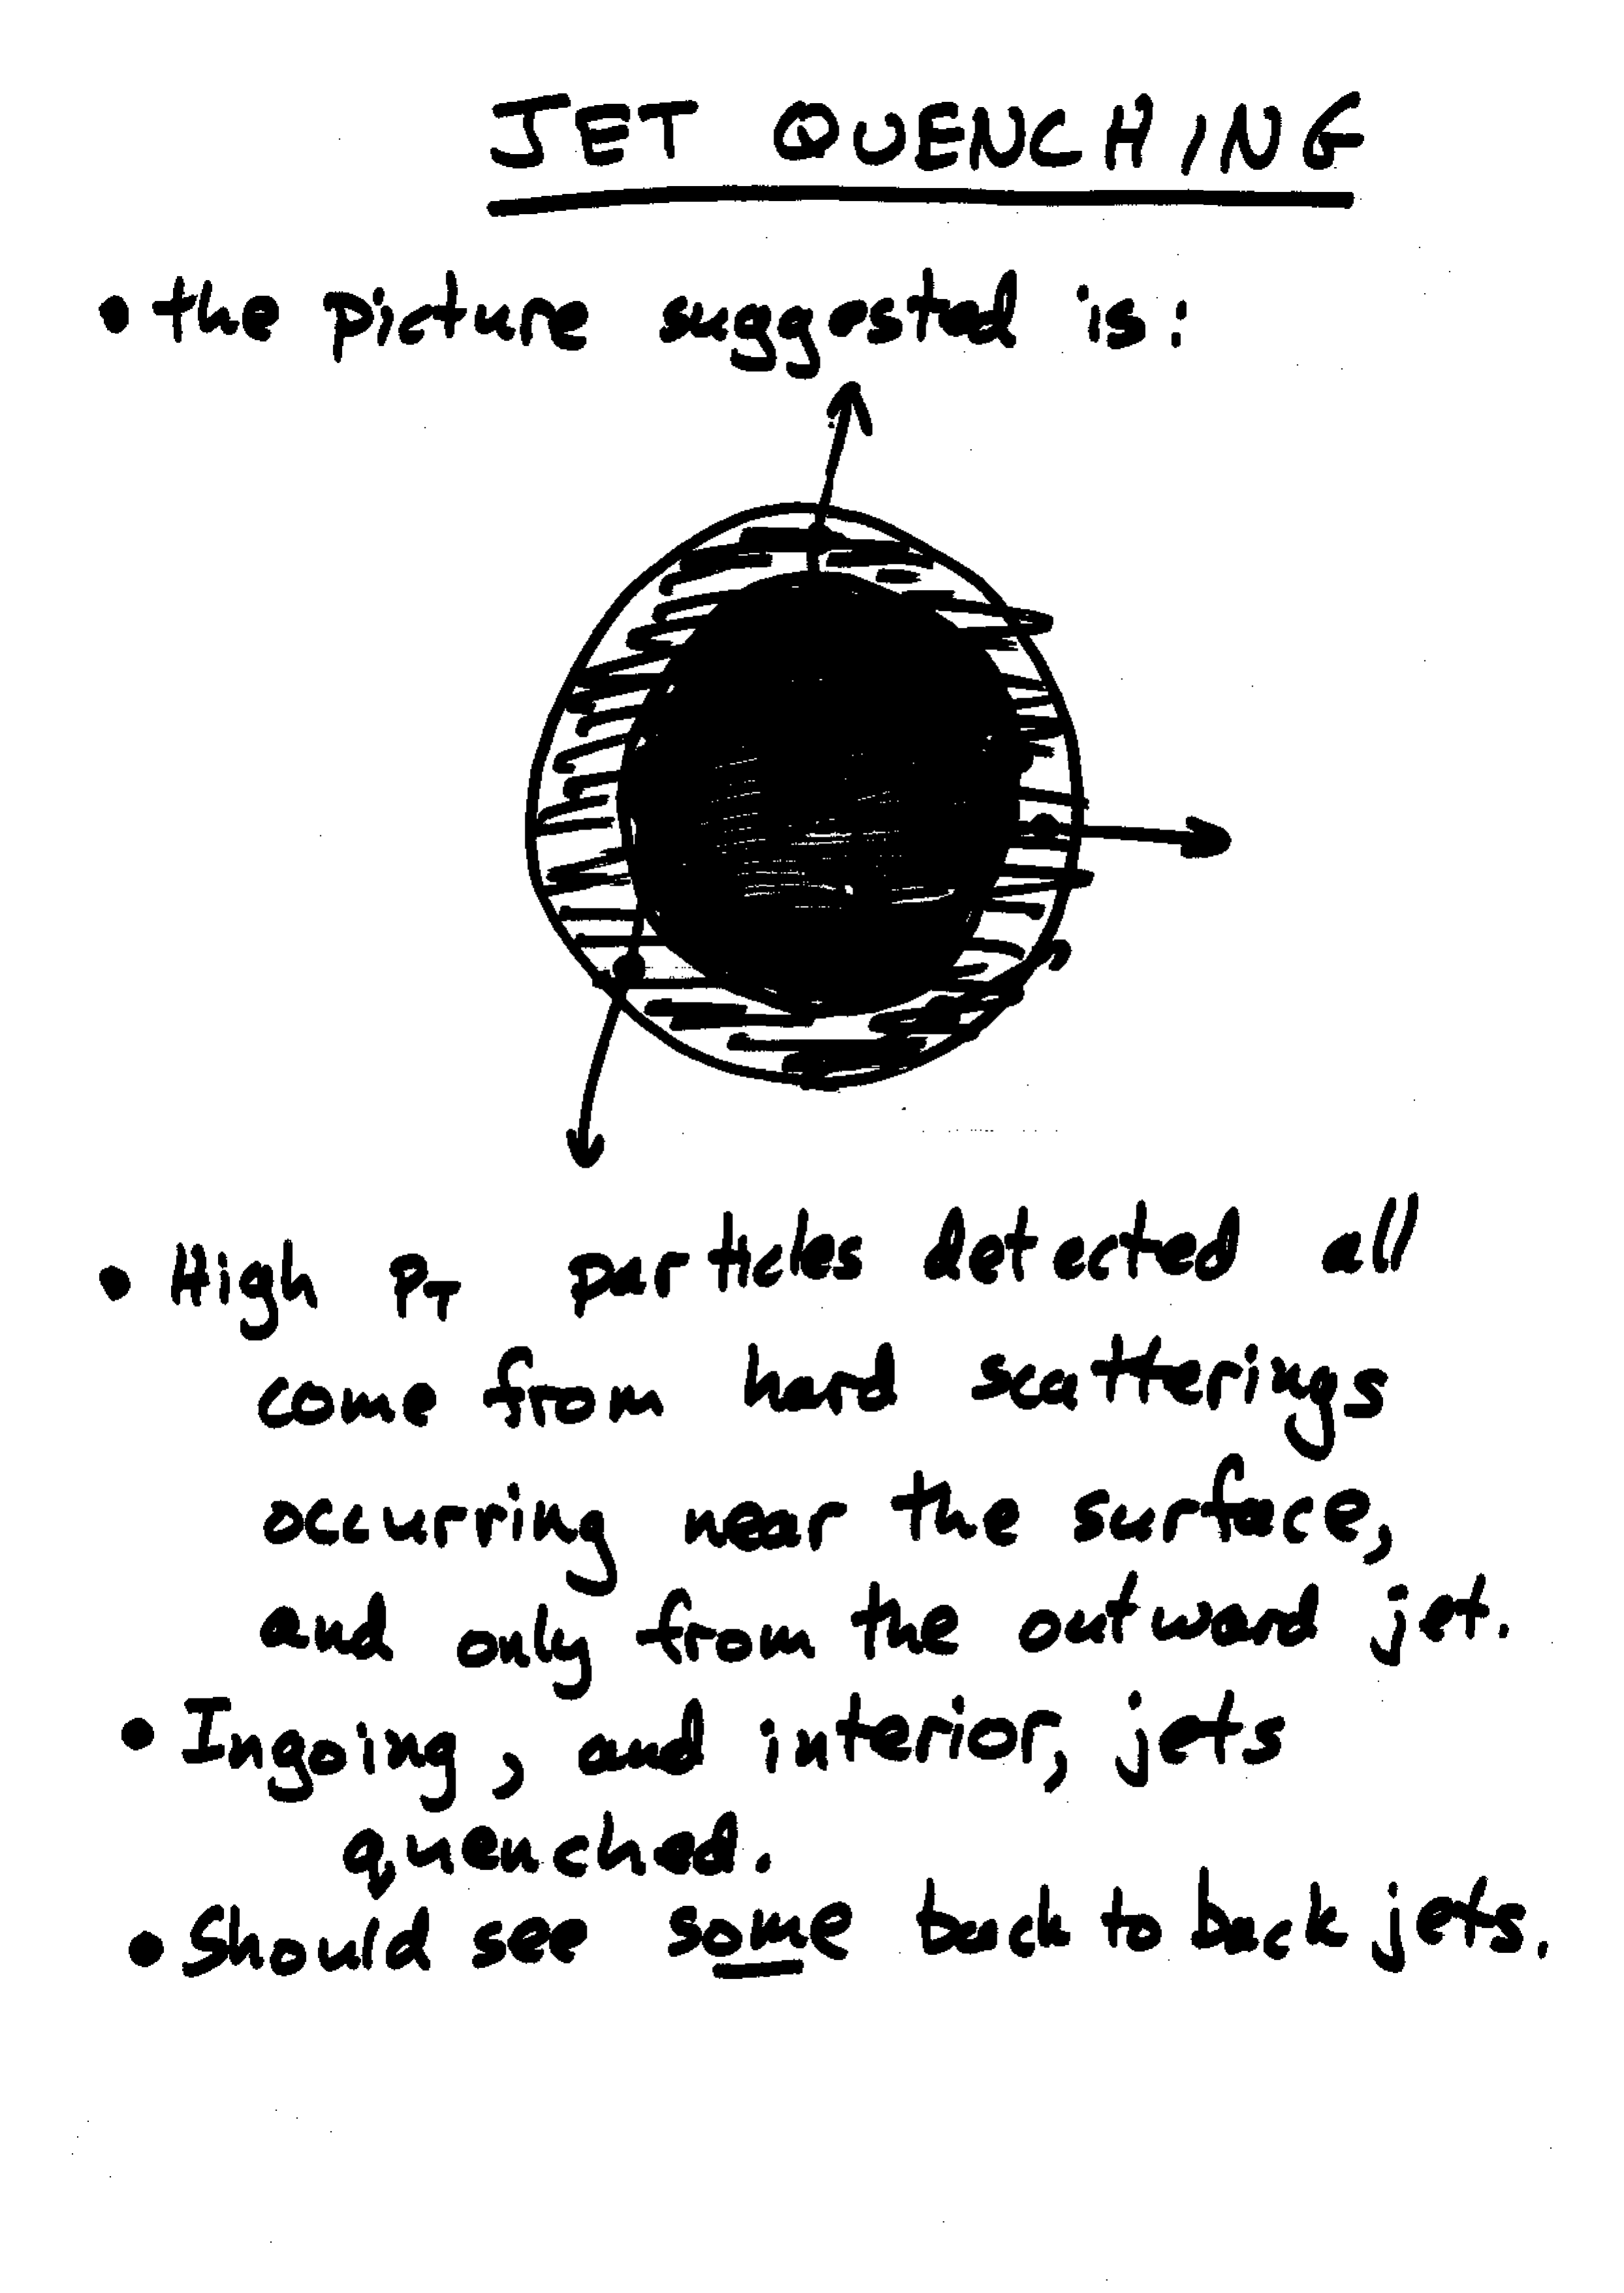 JET QUENCHING
• the picture suggested is:
• High PT particles detected all
come from hard scatterings
occurring near the surface,
and only from the outward jet.
• Ingoing, and interior, jets
quenched.
• Should see some back to back jets.